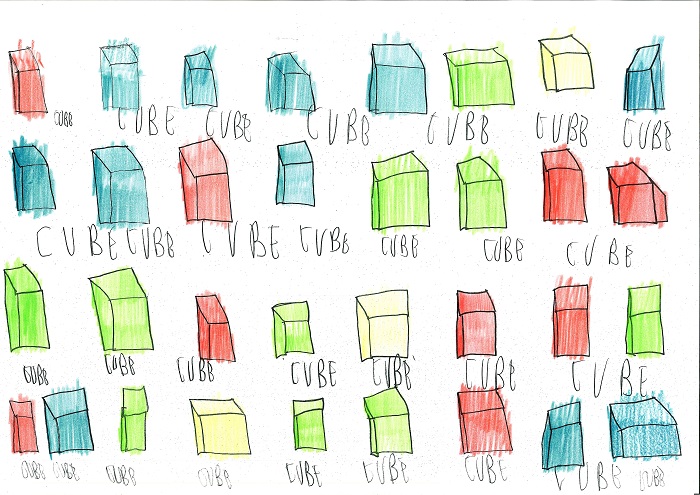 CUBB CUBE CUBB CUBB CUBB CUBB CUBB
CUBE CUBB CUBE CUBB CUBB CUBB CUBE
CUBB CUBB CUBB CUBE CUBB CUBB CUBE
CUBB CUBE CUBB CUBB CUBE CUBB CUBE CUBE CUBB